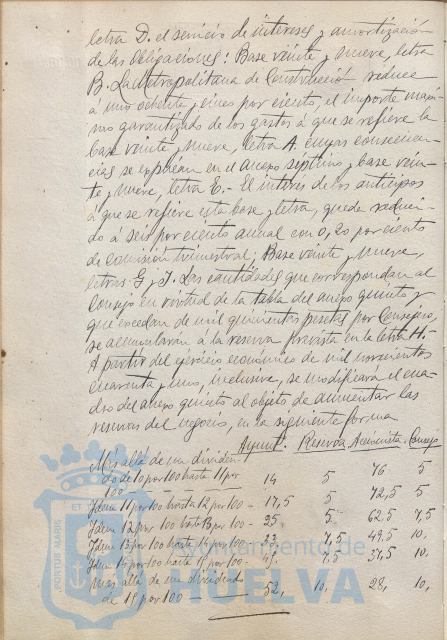 letra D. el servicio de intereses y amortización
de las Obligaciones: Base veinte y nueve, letra
B. La Metropolitana de Construcción reduce
á uno ochenta y cinco por ciento, el importe máxi
mo garantizado de los gastos á que se refiere la
base veinte y nueve, letra A. cuyas consecuen-
cias se expresan en el anexo séptimo y base vein-
te y nueve, letra E.- El interés de los anticipos
á que se refiere esta base y letra, queda reduci
do á seis por ciento anual con 0,20 por ciento
de comisión trimestral; Base veinte y nueve,
letras G y I. Las cantidades que correspondan al
Consejo en virtud de la tabla del anexo quinto y
que excedan de mil quinientas pesetas por Consejero,
se acumularán á la reserva prevista en la letra H.
A partir del ejercicio económico de mil novecientos
cuarenta y uno, inclusive, se modificará el cua-
dro del anexo quinto al objeto de aumentar las
reservas del negocio, en la siguiente forma
Ayunt.º Reserva Accionista Consejo
Más allá de un dividen-
do de 10 por 100 hasta 11 por
100 14 5 76 5
Idem 11 por 100 hasta 12 por 100 - 17,5 5 72,5 5
Idem 12 por 100 hasta 13 por 100 - 25, 5 62,5 7,5
Idem 13 por 100 hasta 14 por 100 - 33, 7,5 49,5 10,
Idem 14 por 100 hasta 15 por 100 - 45, 7,5 37,5 10,
Más allá de un dividendo
de 15 por 100 - 52, 10, 28, 10,
PORTUS MARIS
ET
Ayuntamiento de
HUELVA